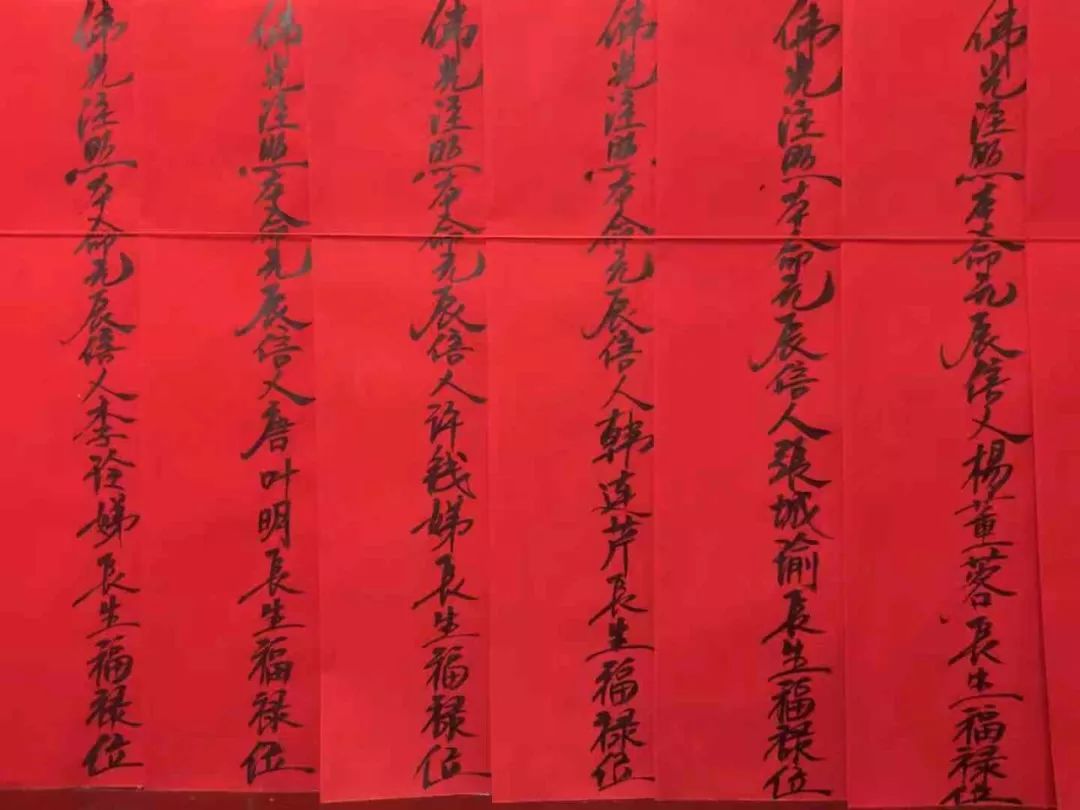 佛光注照本命元辰信人楊董蓉長生福禄位
佛光注照本命元辰信人張城長生福禄位
佛光注照本命元辰信人韓連芹長生福禄位
佛光注照本命元辰信人许钱娣長生福禄位
佛光注照本命元辰信人唐叶明長生福禄位
佛光注照本命元辰信人李娣長生福禄位